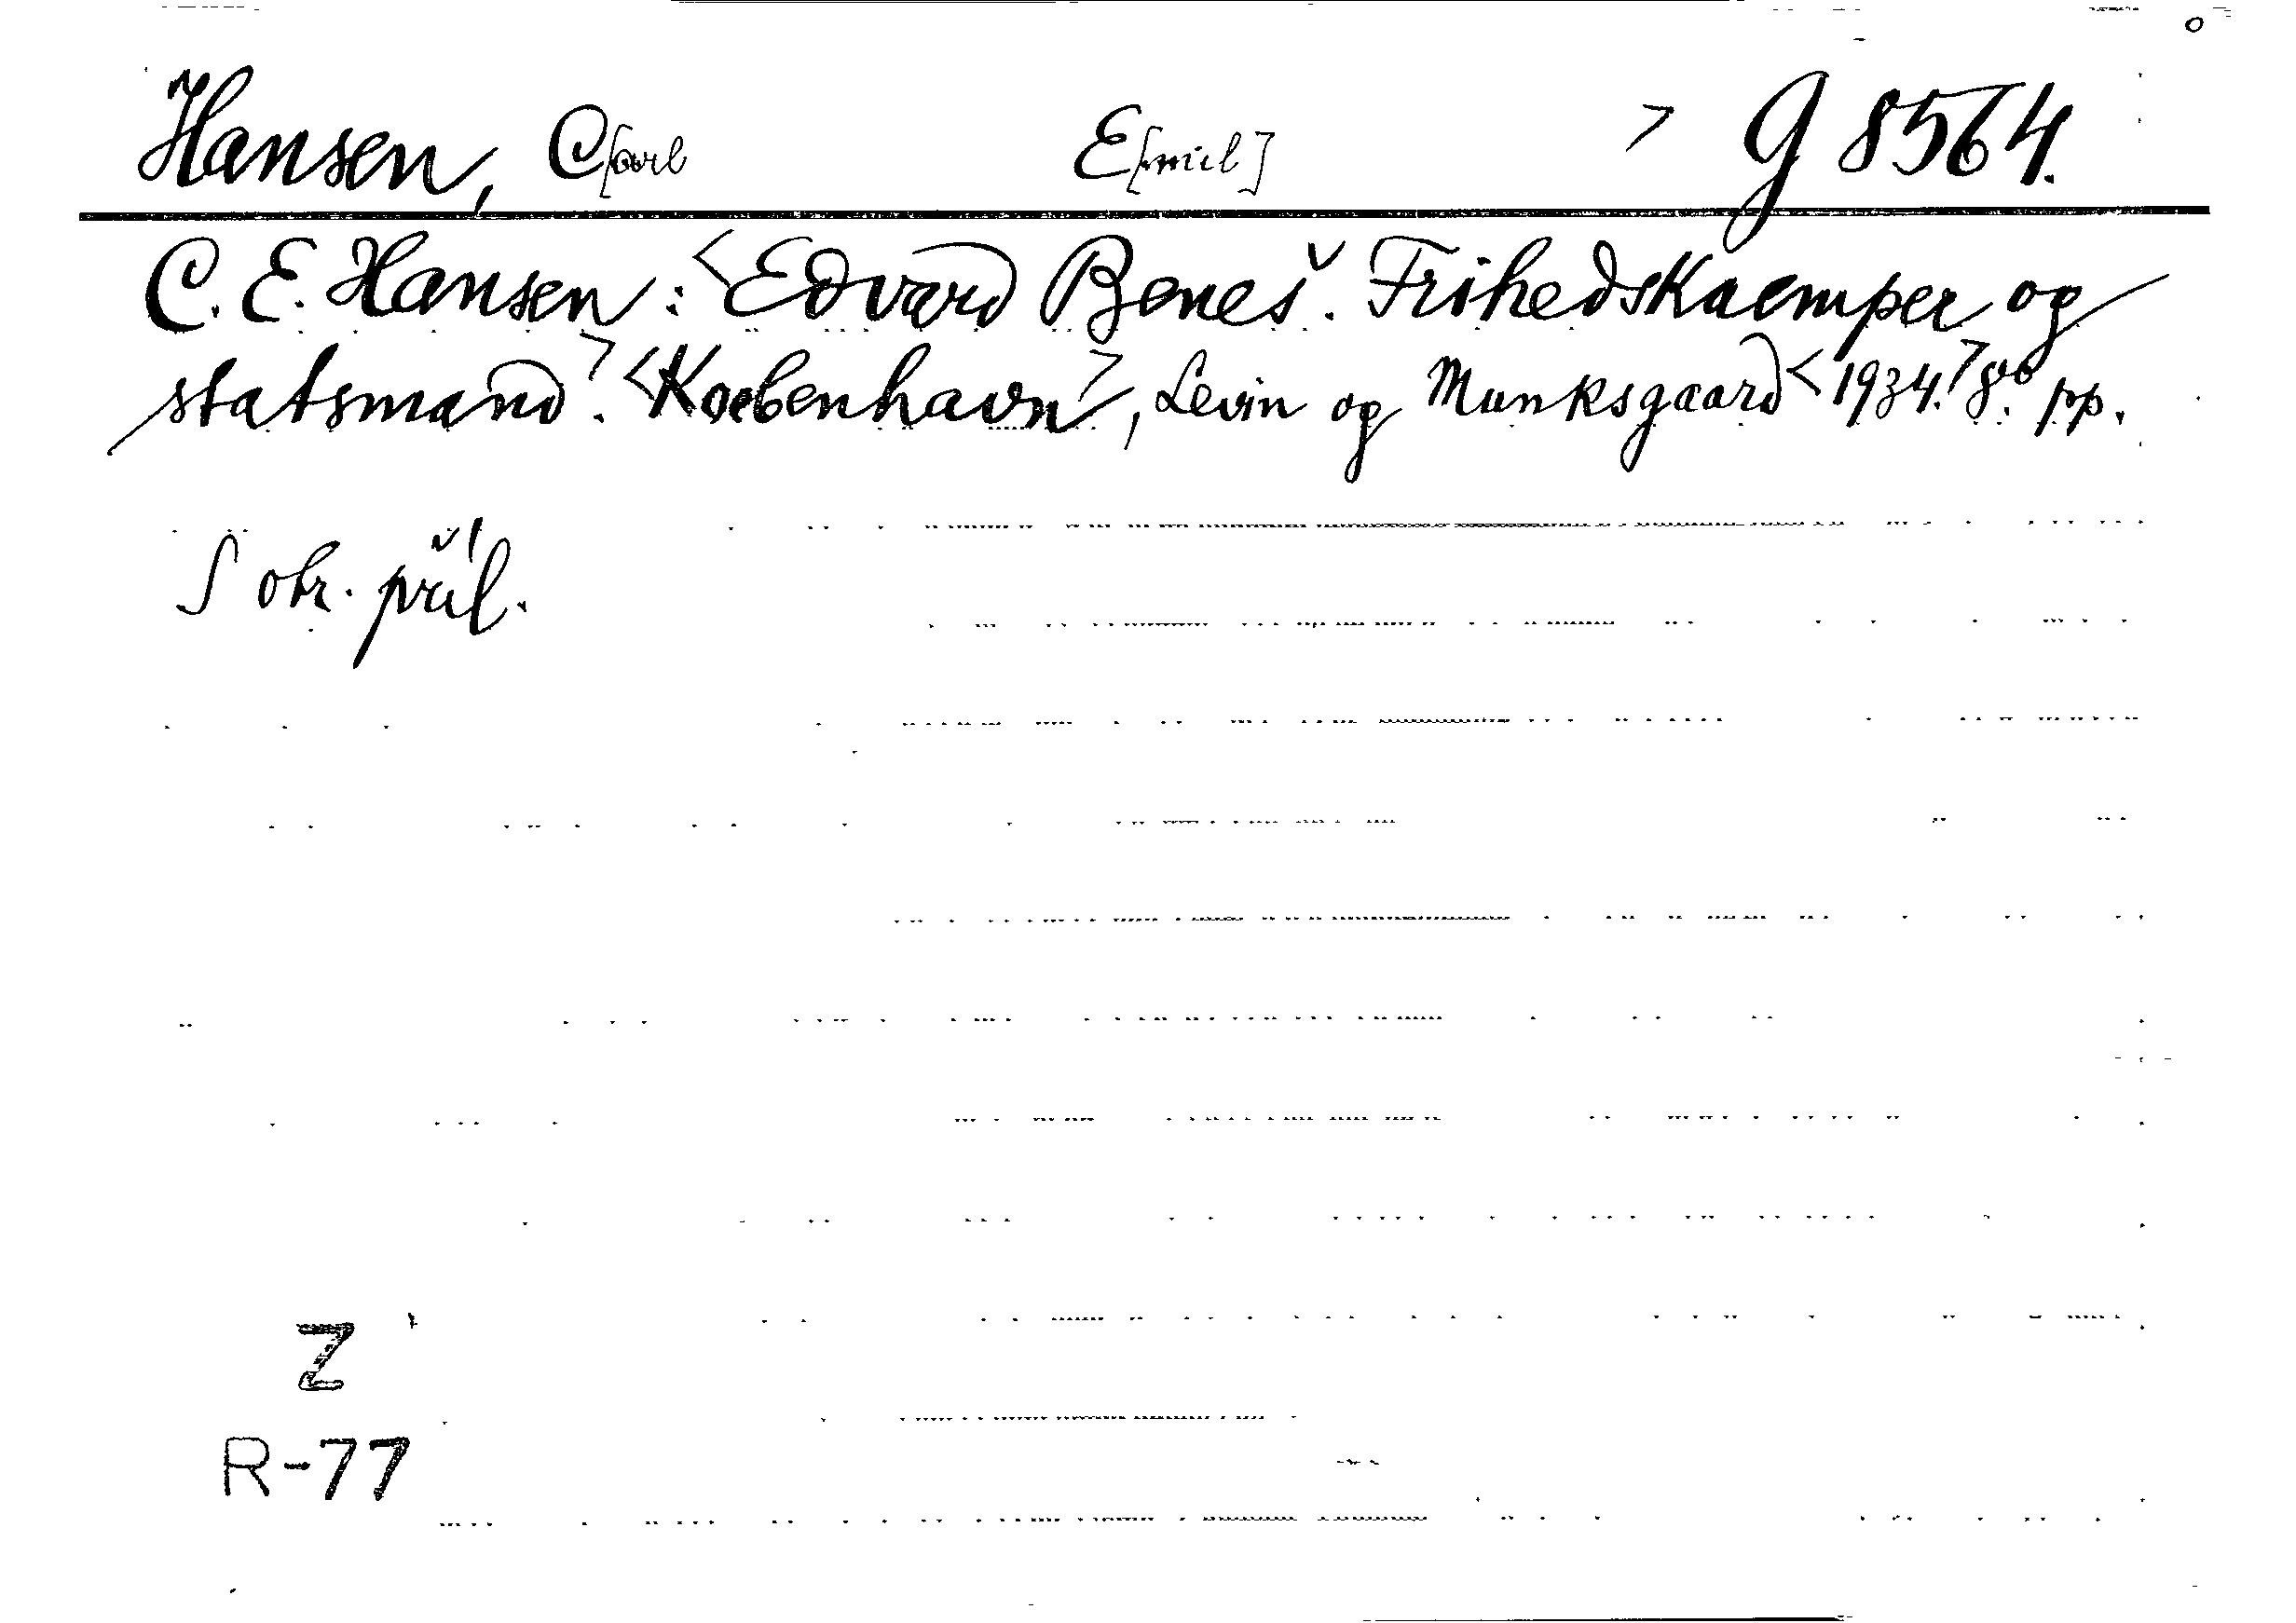 Hansen, C[arl E[mil] > G 8564.
C. E. Hansen: <Edvard Beneš. Frihedskaemper og
statsmand.> <Koebenhavn>, Levin og Munksgaard <1934.> 8.° pp.
S obr. příl.
Z
R-77